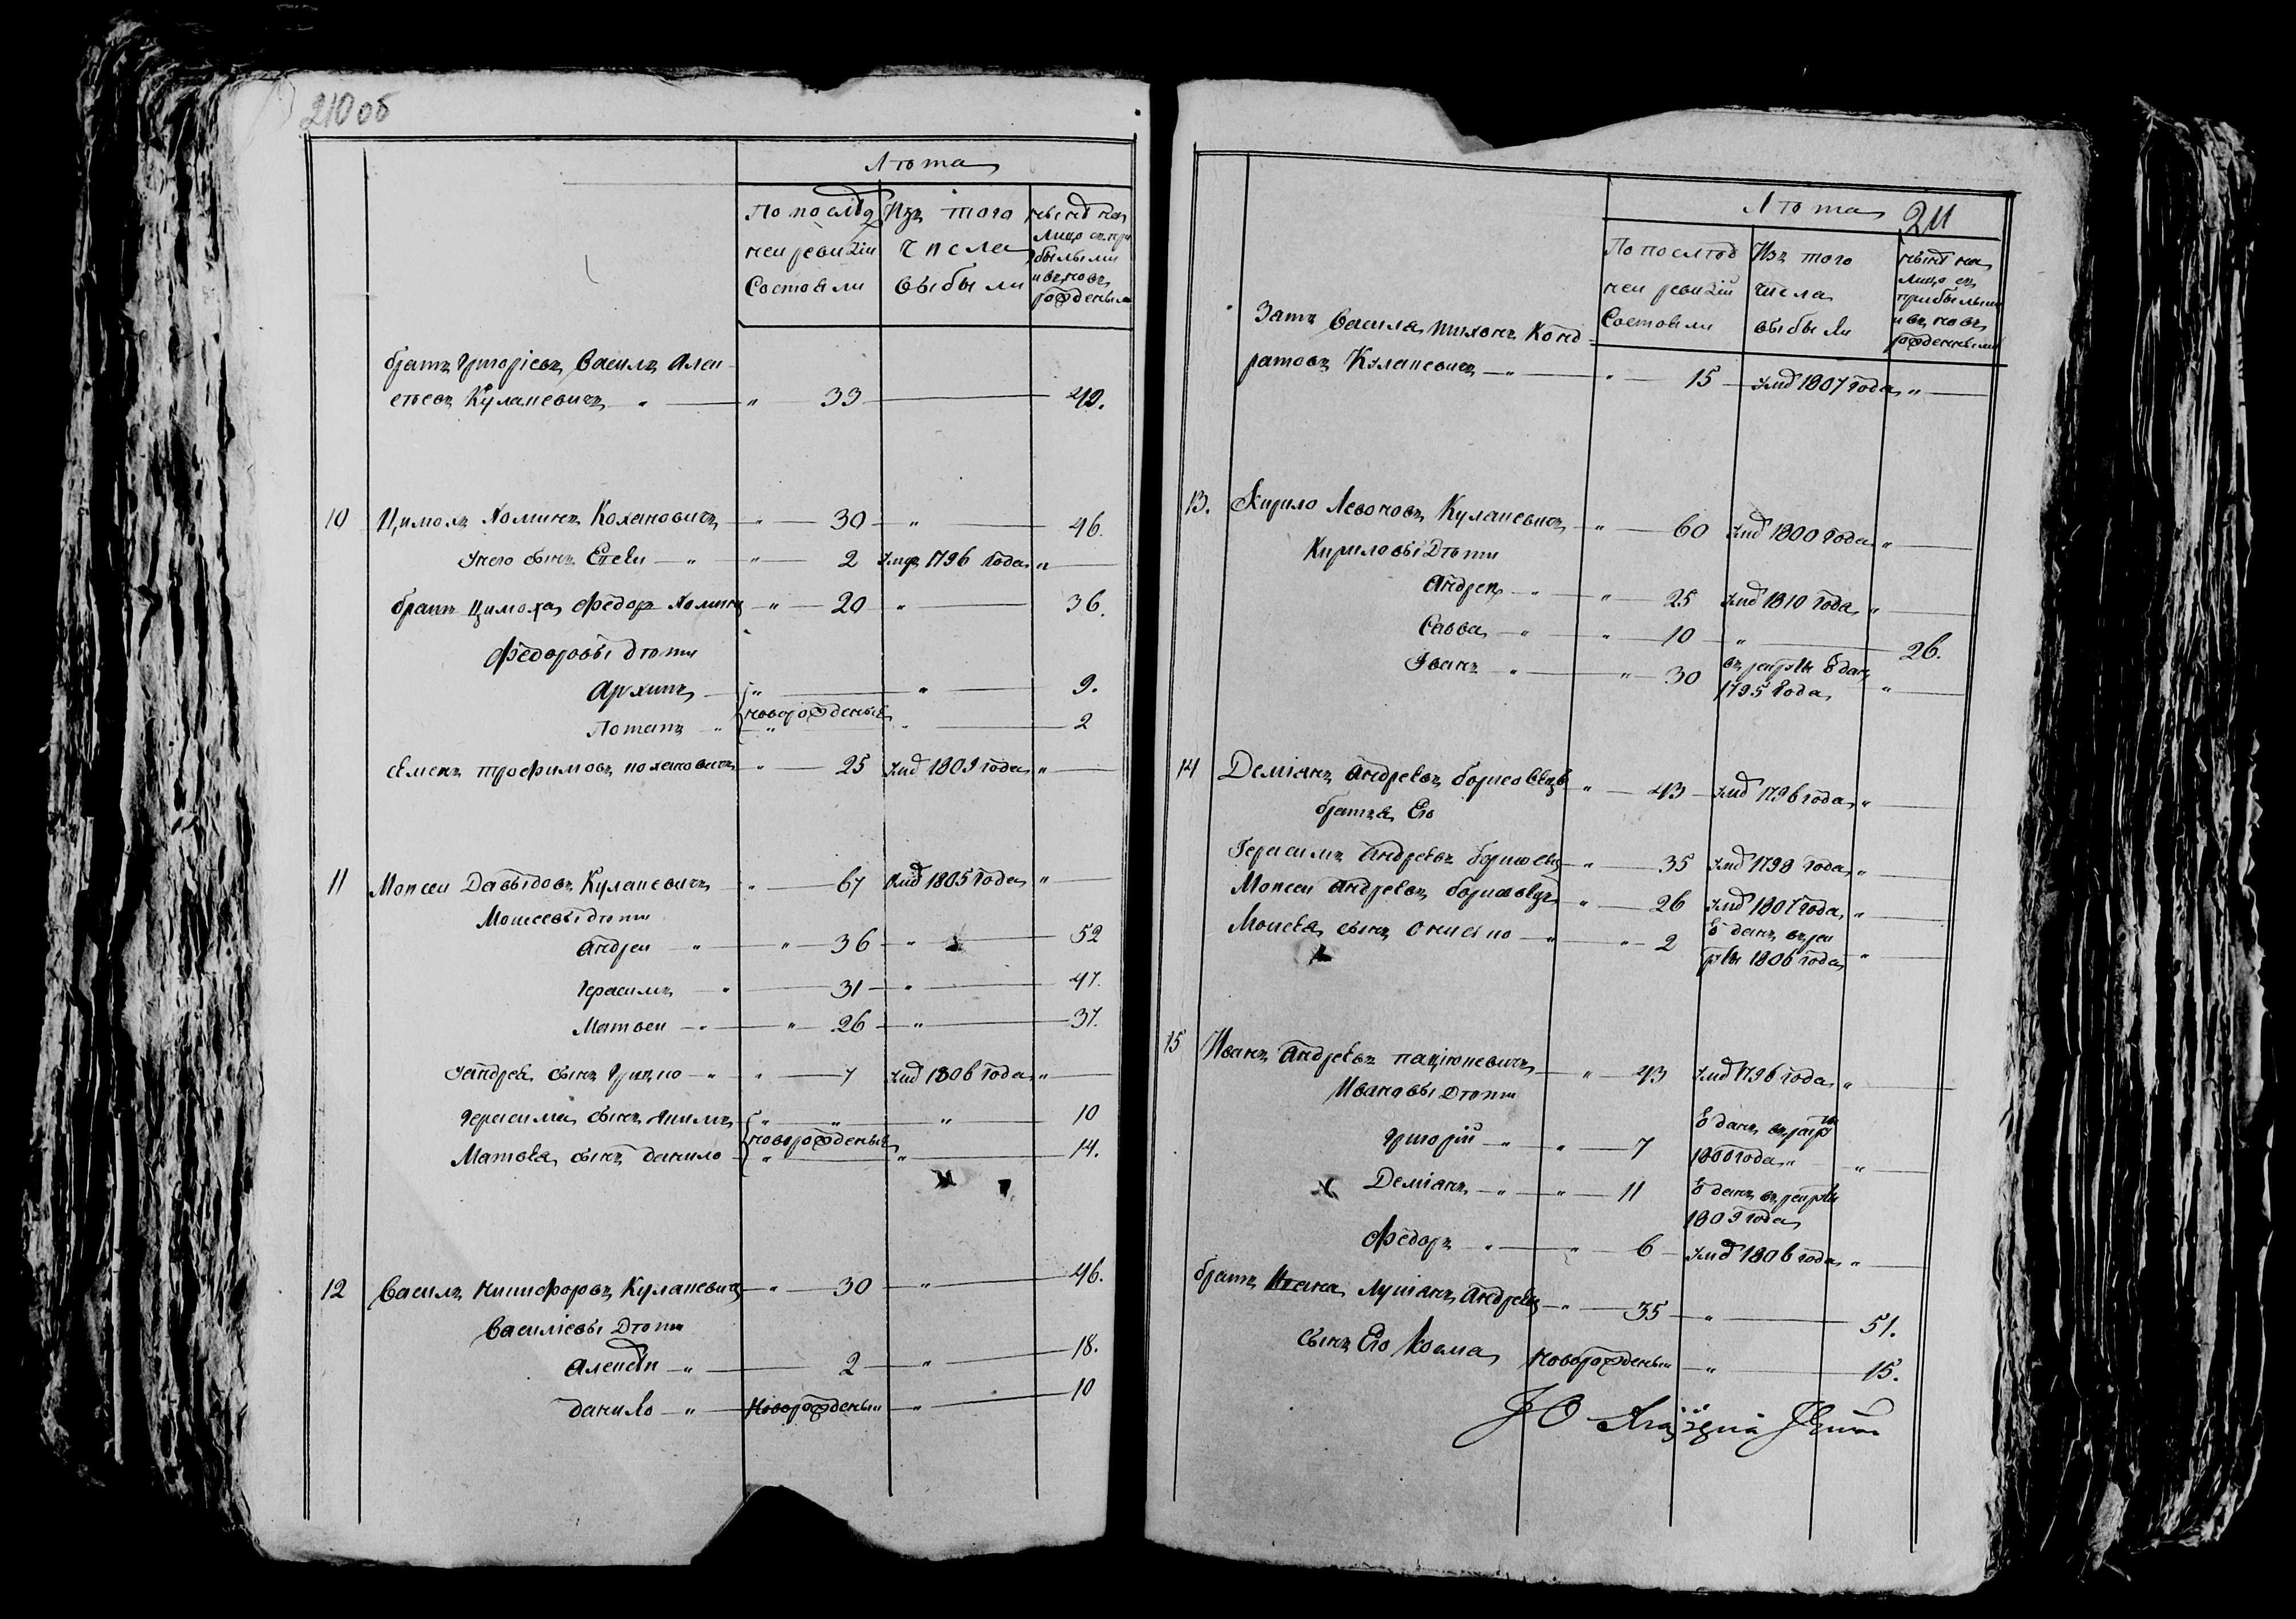 210 об
Лѣта
По послѣд Изъ того нынѣ на
ней ревизіи числа лицо съ при
былыми
Состояли выбыли и въ новь
рожденными
братъ Григоріевъ Василь Алек
сѣевъ Куланевичъ " — " 33 — 49.
10 Цимохъ Хоминъ Кохановичъ — " — 30 — " — 46.
Унего сынъ Евсей — " — " — 2 умръ 1796 года "
братъ Цимоха Федоръ Хоминъ — " — 20 — " — 36.
Федоровы дѣти
Архипъ — " — " — 9.
новорожденные
Потапъ " — " — " — 2
Семенъ Трофимовъ Кохановичъ — " — 25 умѣ 1809 года "
11 Моисей Давыдовъ Куланевичъ — " — 67 умѣ 1805 года "
Моисеевы дѣти
Андрей " — " — 36 — " — 52
Герасимъ — " — 31 — " — 47.
Матвей — " — " 26 — " — 37.
Уандрея сынъ Грицко — " — " — 7 умѣ 1806 года "
Герасима сынъ Якимъ — " — " — " — 10
новорожденные
Матвея сынъ Данило — " — " — 14.
12 Василь Никифоровъ Куланевичъ — " — 30 — " — 46.
Василіевы Дѣти
Алексѣй — " — 2 — " — 18.
Данило — " — Новорожденый — " — 10
Лѣта 211
По послѣд Изъ того нынѣ на
ней ревизіи числа лицо съ
прибылыми
Состояли выбыли и въ новь
рожденными
Зать Василя Тихонъ Конд
ратовъ Куланевичъ — " — " — 15 — умѣ 1807 года "
13. Кирило Левоновъ Куланевичъ — " — 60 умѣ 1800 года "
Кириловы Дѣти
Андрей — " — " — 25 умѣ 1810 года "
Савва — " — " — 10 — " — 26.
Иванъ — " — " 30 въ рекруты Ѿданъ
1795 года "
14 Деміанъ Андреевъ Борисовецъ " — 43 — умѣ 1796 года "
братья Его
Герасимъ Андреевъ Борисовецъ — " — 35 умѣ 1798 года "
Моисей Андреевъ Борисовецъ " — 26 умѣ 1807 года "
Моисея сынъ Онисько — " — " 2 Ѿданъ въ рек
руты 1806 года "
15 Иванъ Андреевъ Пацюкевичъ — " — 43 умѣ 1796 года "
Ивановы Дѣти
Григорій — " — " — 7 Ѿданъ въ рекруты
1800 года " — "
Деміанъ — " — " — 11 Ѿданъ въ рекруты
1809 года
Федоръ " — " — 6 — умѣ 1806 года "
братъ Ивана Лукіанъ Андреевъ — " — 35 — " — 51.
сынъ Его Козма Новорожденый — " — 15.